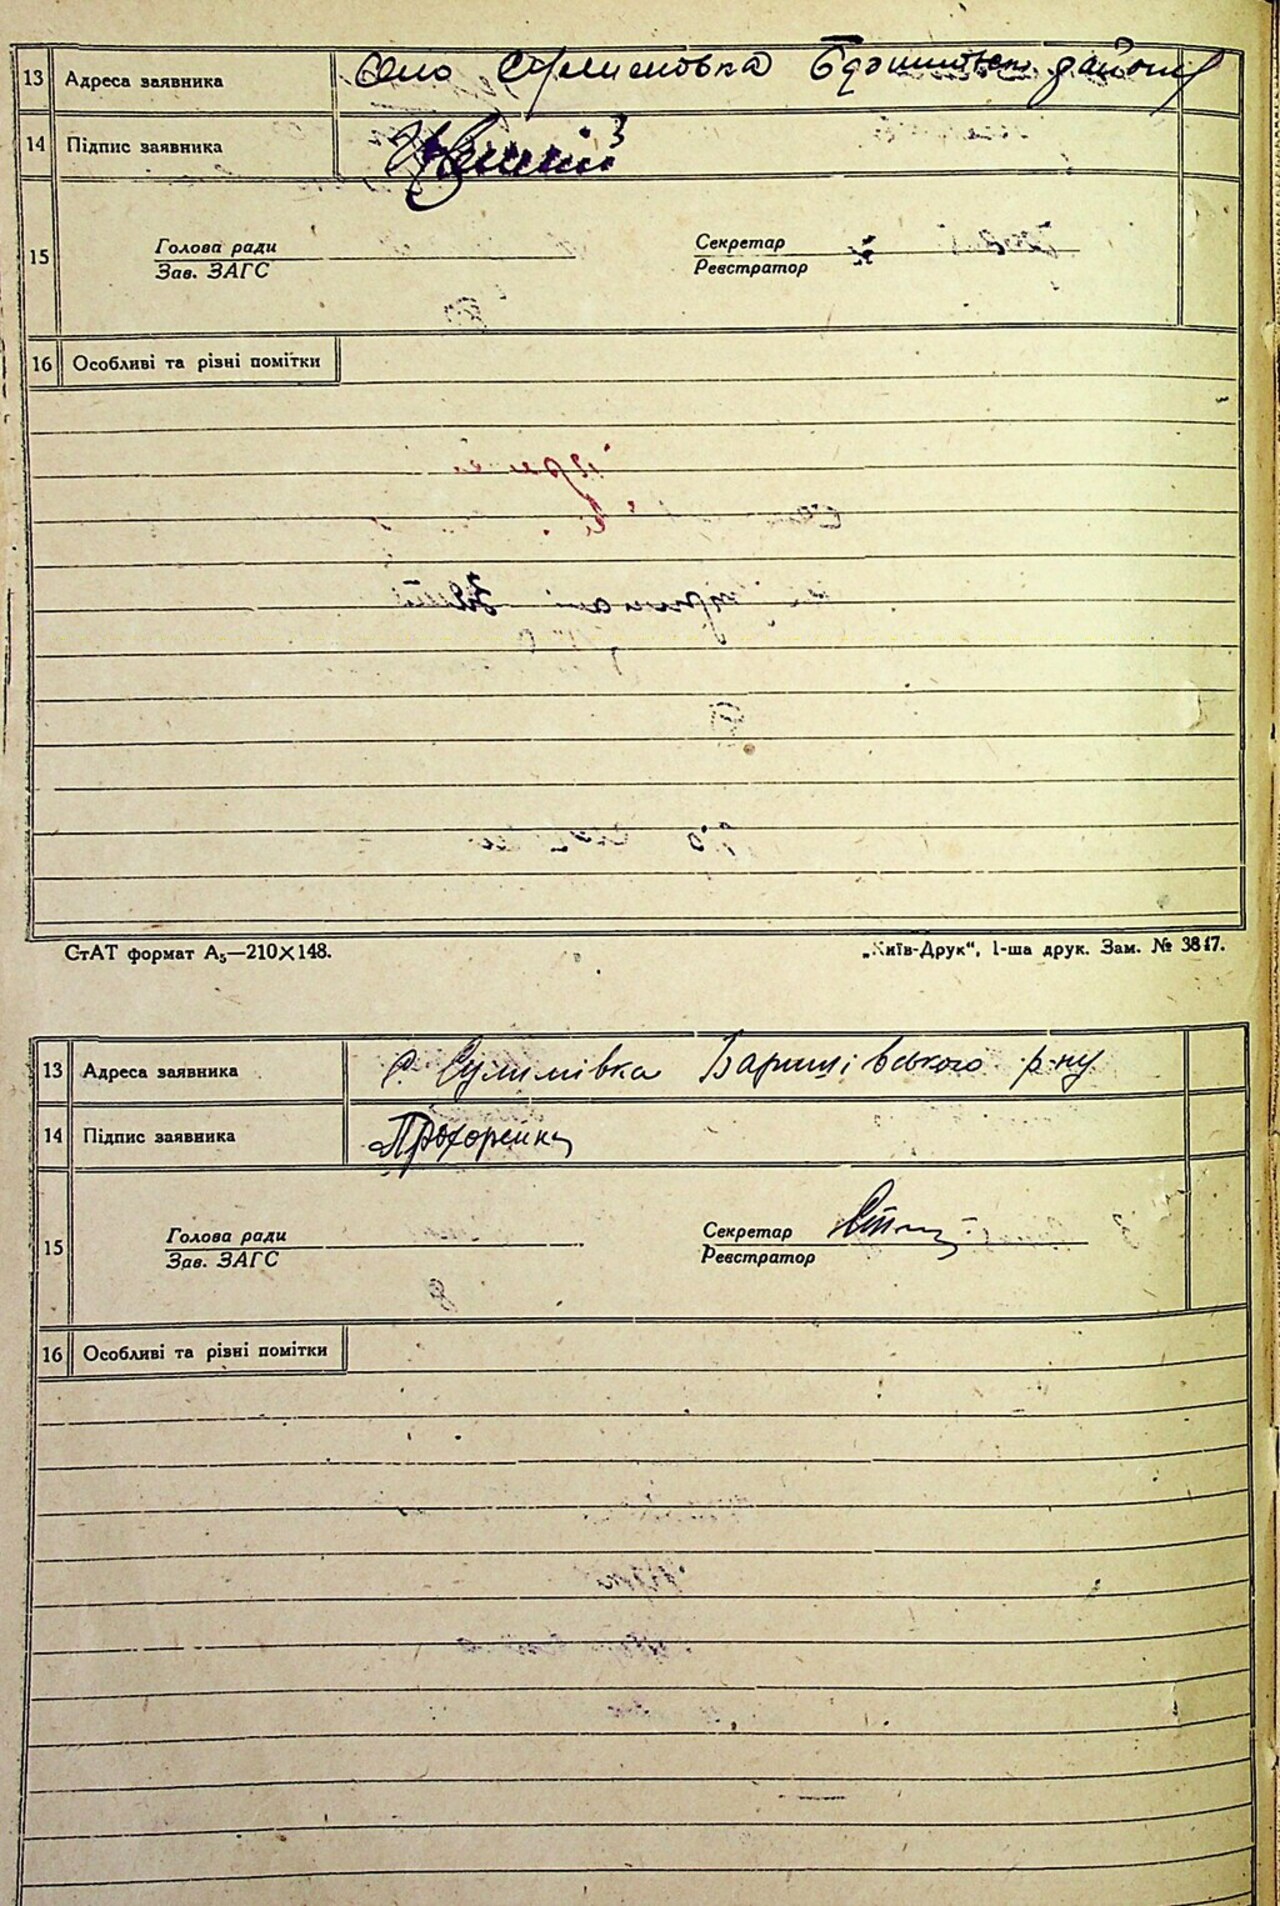 13 Адреса заявника село району
14 Підпис заявника
15 Голова ради Секретар
Зав. ЗАГС Реєстратор
16 Особливі та різні помітки
СтАТ формат А₅—210×148. „Київ-Друк“, 1-ша друк. Зам. № 3817.
13 Адреса заявника с. Сулимівка Баришівського р-ну
14 Підпис заявника Прохоренко
15 Голова ради Секретар
Зав. ЗАГС Реєстратор
16 Особливі та різні помітки